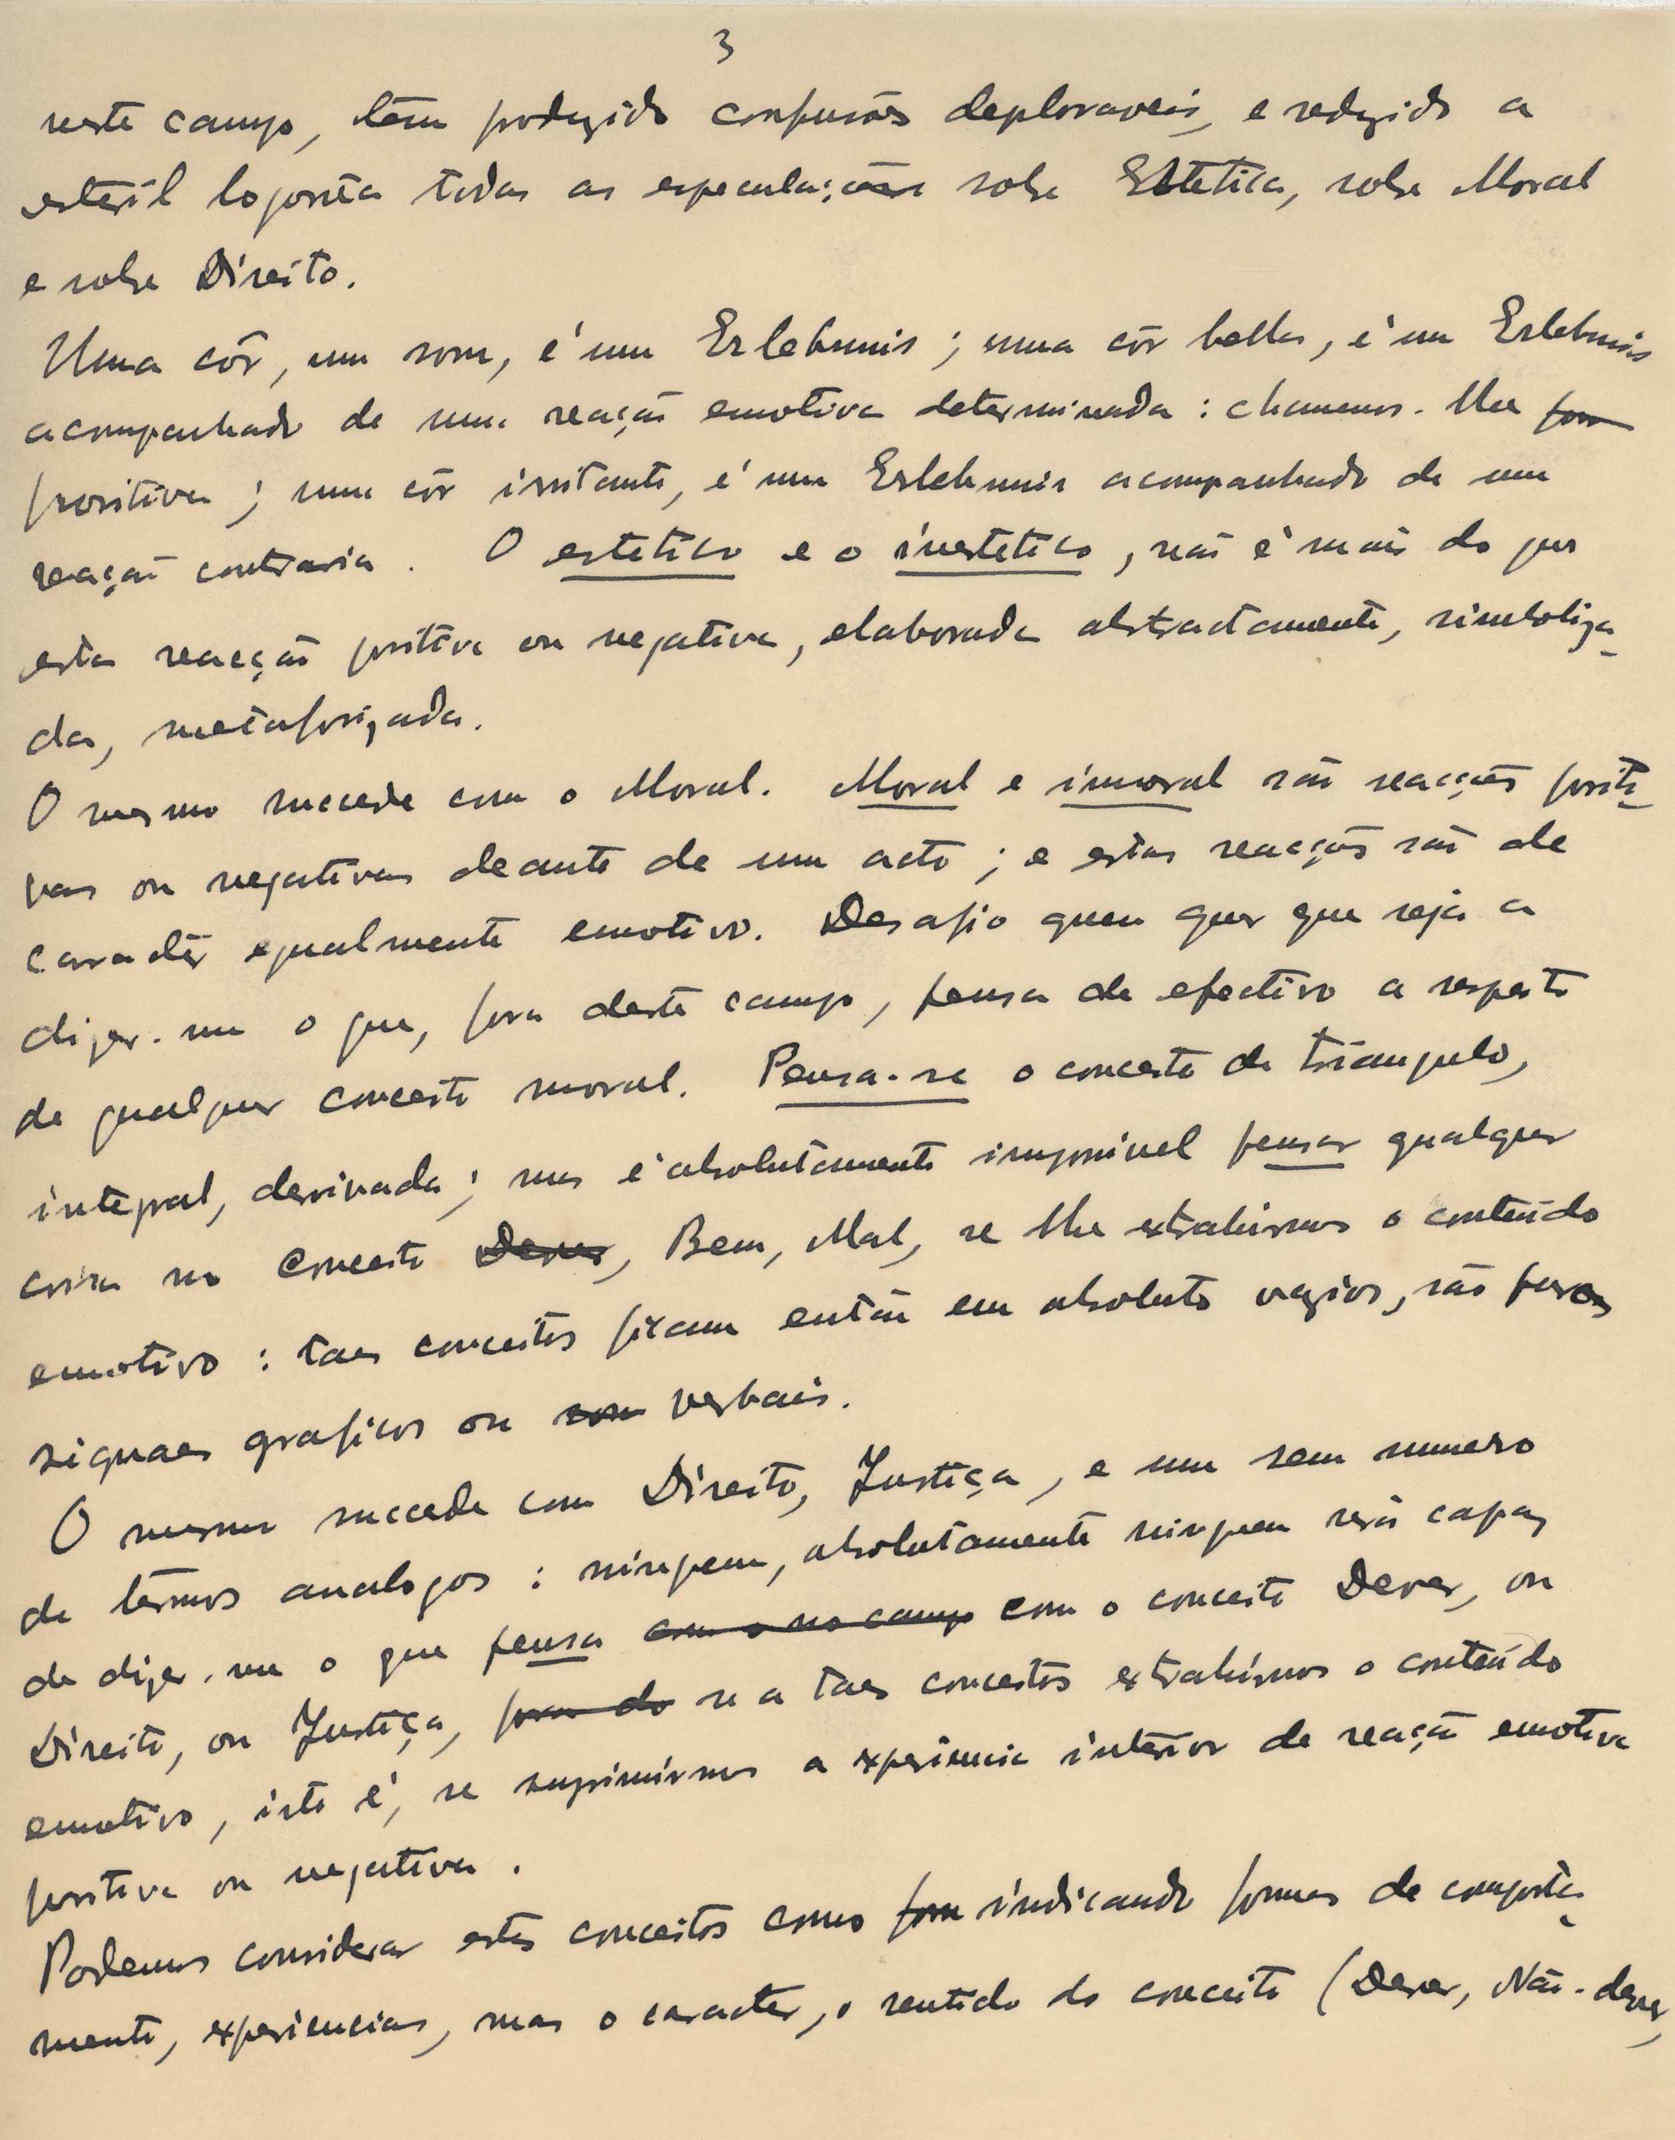 3
neste campo, têm produzido confusões deploraveis, e reduzido a
esteril logorréa todas as especulações sobre Estetica, sobre Moral
e sobre Direito.
Uma côr, um som, é um Erlebnnis; uma côr bella, é um Erlebnnis
acompanhado de uma reaçaõ emotiva determinada: chamemos-lhe
positiva; uma côr irritante, é um Erlebnnis acompanhado de uma
reaçaõ contraria. O estetico e o inestetico, naõ é mais do que
esta reacçaõ positiva ou negativa, elaborada abstractamente, simboliza-
da, metaforizada.
O mesmo succede com o Moral. Moral e immoral saõ reacções positi-
vas ou negativas deante de um acto; e estas reacções saõ de
caractér egualmente emotivo. Desafio quem quer que seja a
dizer-me o que, fora deste campo, pensa de efectivo a respeito
de qualquer conceito moral. Pensa-se o conceito de triangulo,
integral, derivada; mas é absolutamente impossivel pensar qualquer
coisa no conceito Dever, Bem, Mal, se lhe extrahirmos o conteúdo
emotivo: taes conceitos ficam entaõ em absoluto vazios, são puros
signaes graficos ou som verbais.
O mesmo succede com Direito, Justiça, e um sem numero
de têrmos analogos: ninguem, absolutamente ninguem será capaz
de dizer-me o que pensa com o no campo com o conceito Dever, ou
Direito, ou Justiça, fora do se a taes conceitos extrahirmos o conteúdo
emotivo, isto é, se suprimirmos a experiencia interior de reaçaõ emotiva
positiva ou negativa.
Podemos considerar estes conceitos como form indicando formas de comporta-
mento, experiencias, mas o caracter, o sentido do conceito (Dever, Naõ-dever,